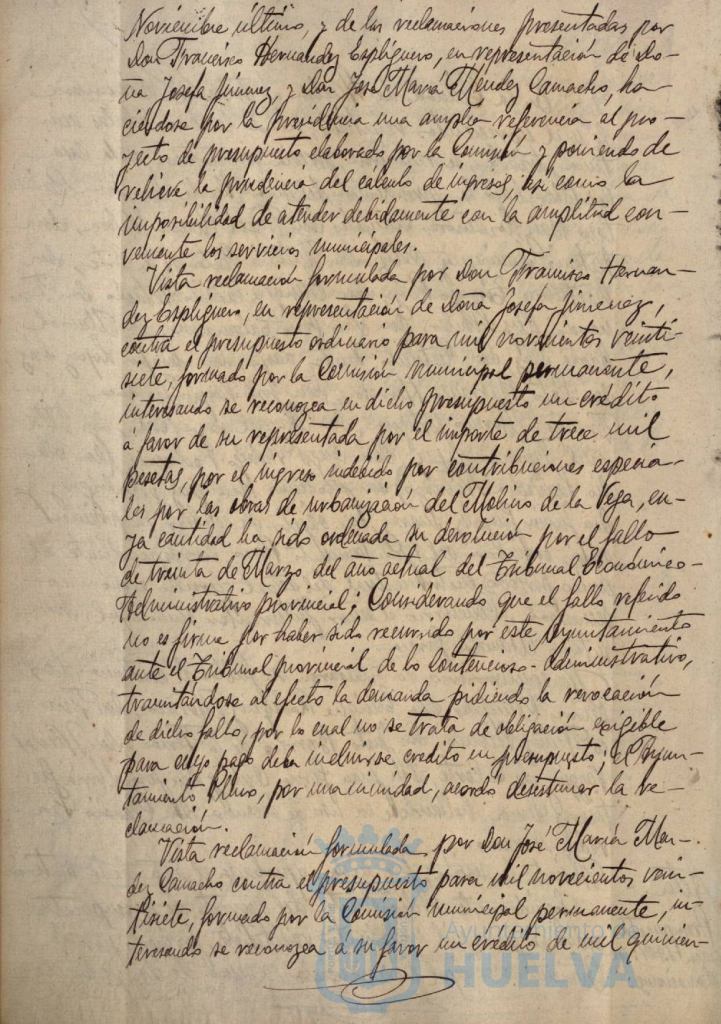 Noviembre último, y de las reclamaciones presentadas por
Don Francisco Hernandez Espliguero, en representación de Do-
ña Josefa Jimenez, y Don José María Méndez Camacho, ha-
ciendose por la presidencia una amplia referencia al pro-
yecto de presupuesto elaborado por la Comisión y poniendo de
relieve la prudencia del cálculo de ingresos, así como la
imposibilidad de atender debidamente con la amplitud con-
veniente los servicios municipales.
Vista reclamación formulada por Don Francisco Hernan-
dez Espliguero, en representación de Doña Josefa Jimenez,
contra el presupuesto ordinario para mil novecientos veinti-
siete, formado por la Comisión municipal permanente,
interesando se reconozca en dicho presupuesto un crédito
á favor de su representada por el importe de trece mil
pesetas, por el ingreso indebido por contribuciones especia-
les por las obras de urbanización del Molino de la Vega, cu-
ya cantidad ha sido ordenada su devolución por el fallo
de treinta de Marzo del año actual del Tribunal Económico-
Administrativo provincial; Considerando que el fallo referido
no es firme por haber sido recurrido por este Ayuntamiento
ante el Tribunal provincial de lo Contencioso-administrativo,
tramitándose al efecto la demanda pidiendo la revocación
de dicho fallo, por lo cual no se trata de obligación exigible
para cuyo pago deba incluirse crédito en presupuesto; el Ayun-
tamiento Pleno, por unanimidad, acordó desestimar la re-
clamación.
Vista reclamación formulada por Don José María Men-
dez Camacho contra el presupuesto para mil novecientos vein-
tisiete, formado por la Comisión municipal permanente, in-
teresando se reconozca a su favor un crédito de mil quinien-
Ayuntamiento de
HUELVA